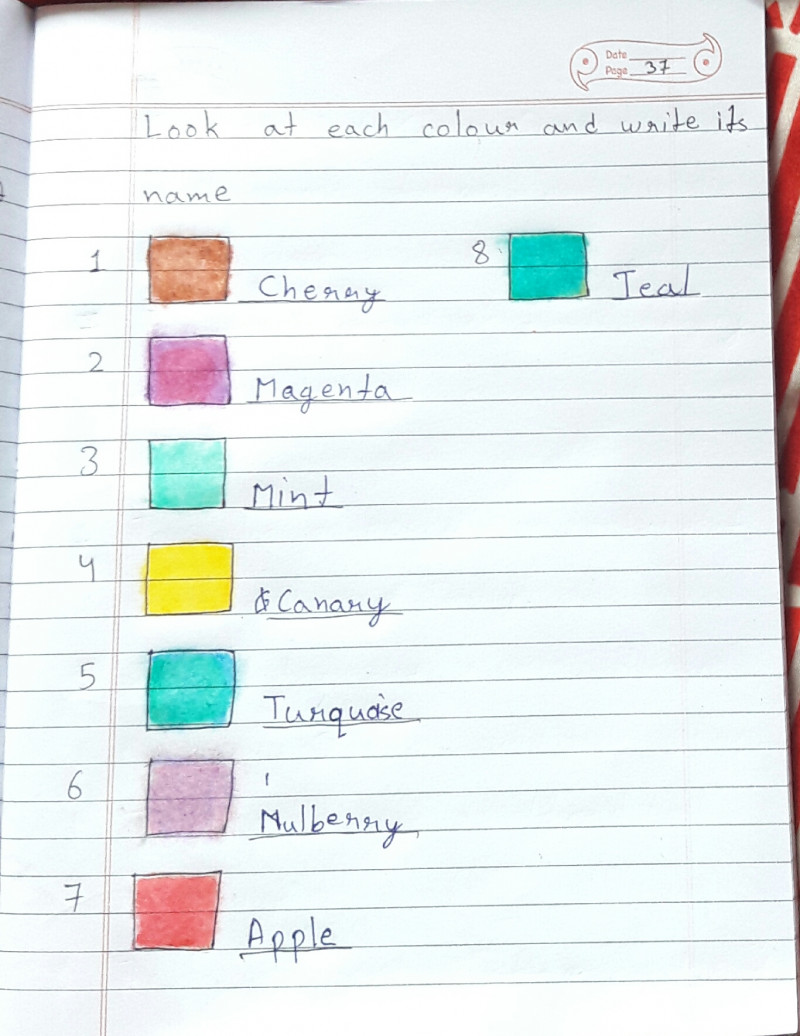 Date
Page 37
Look at each colour and write its
name
1 Cherry
2 Magenta
3 Mint
4 Canary
5 Turquoise
6 Mulberry
7 Apple
8 Teal